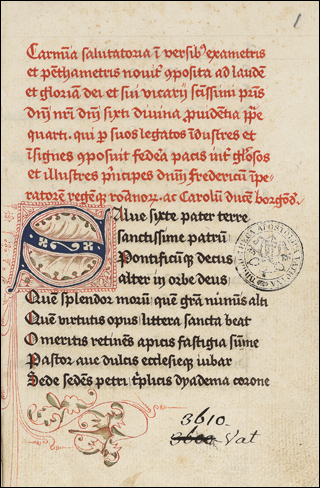 1
Carmina salutatoria in versibus exametris
et penthametris noviter composita ad laudem
et gloriam dei et sui vicarij sctissimi patris
dni nri dni sixti divina providentia ppe
quarti. qui p suos legatos industres et
insignes composuit federa pacis int gloosos
et illustres principes dnum fredericum impe-
ratorem regemque romanorum. ac Carolum ducem borgondie.
Salue sixte pater terre
sanctissime patrum
Pontificumque decus
alter in orbe deus
Que splendor morum quem gratia numinis alti
Quem virtutis opus littera sancta beat
O meritis retinens apicis fastigia summe
Pastor aue dulcis ecclesieque iubar
Sede sedens petri triplicis dyadema corone
3610.
3600 Vat